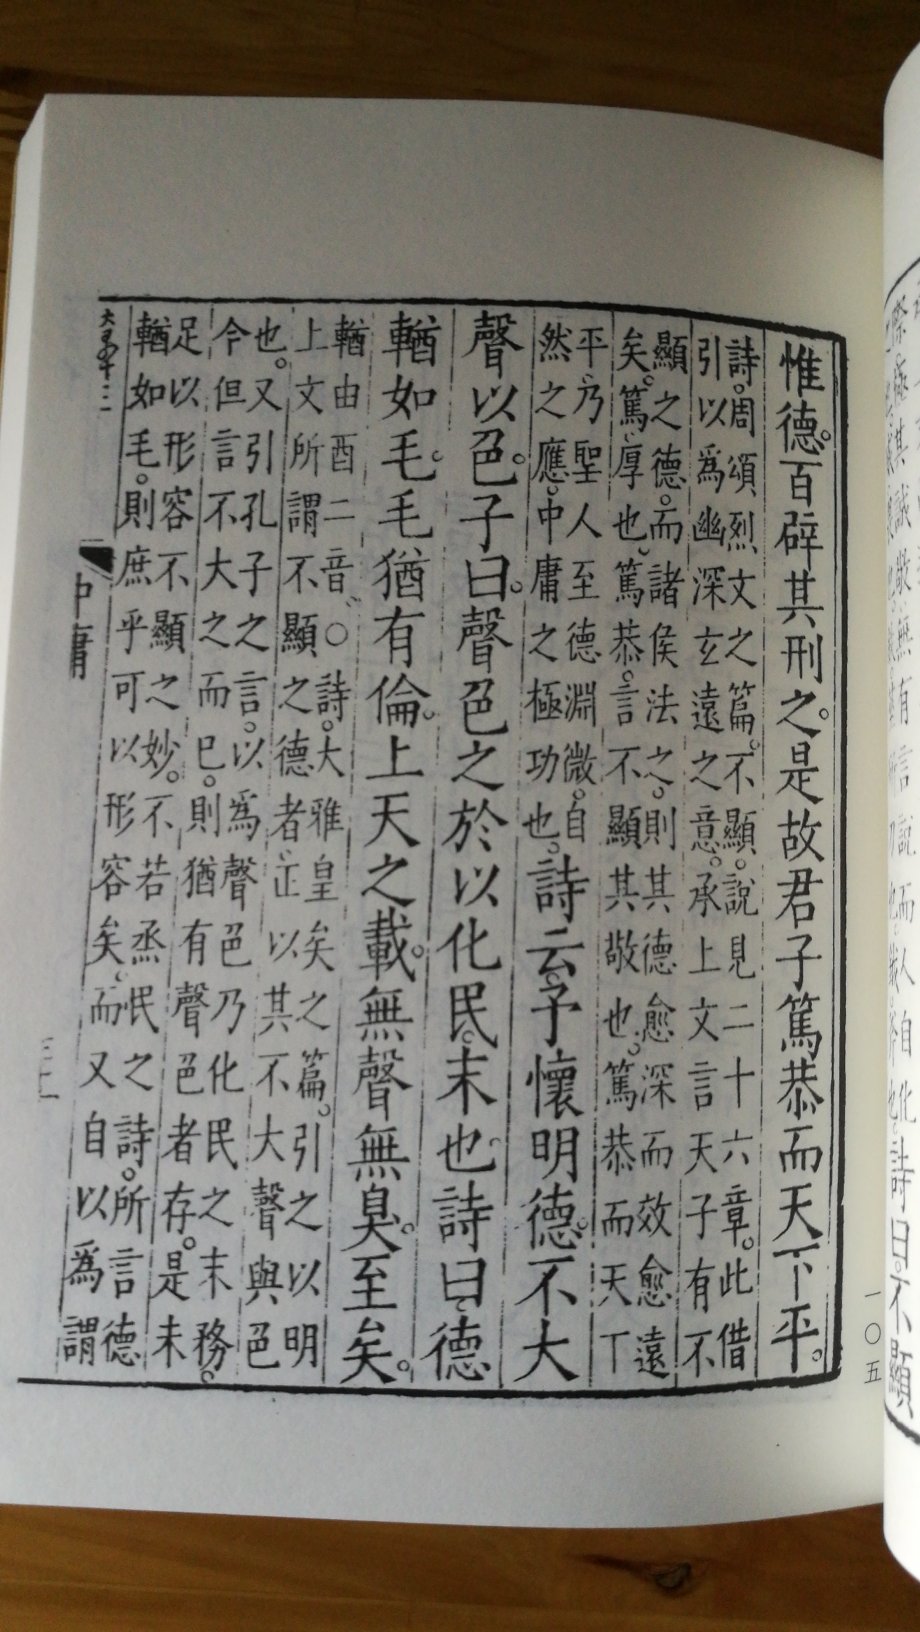 詩曰。不顯
惟德。百辟其刑之。是故君子篤恭而天下平。
詩。周頌烈文之篇。不顯。說見二十六章。此借
引以爲幽深玄遠之意。承上文言天子有不
顯之德。而諸侯法之。則其德愈深而效愈遠
矣。篤、厚也、篤恭。言不顯其敬也。篤恭而天下
平、乃聖人至德淵微。自
然之應。中庸之極功也。
詩云。予懷明德。不大
聲以色。子曰。聲色之於以化民。末也。詩曰。德
輶如毛。毛猶有倫。上天之載。無聲無臭。至矣。
輶由酉二音。○詩。大雅皇矣之篇。引之以明
上文所謂不顯之德者、正以其不大聲與色
也。又引孔子之言。以爲聲色乃化民之末務。
今但言不大之而已。則猶有聲色者存。是未
足以形容不顯之妙。不若烝民之詩。所言德
輶如毛。則庶乎可以形容矣。而又自以爲謂
中庸
一〇五